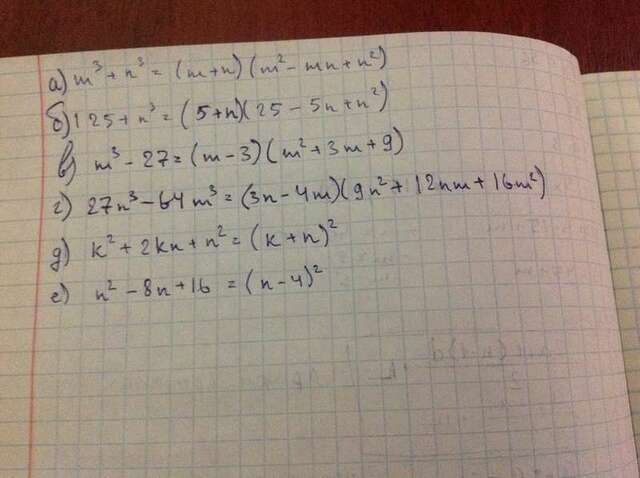 а) m³ + n³ = (m+n)(m² - mn + n²)
б) 125 + n³ = (5+n)(25 - 5n + n²)
в) m³ - 27 = (m-3)(m² + 3m + 9)
г) 27n³ - 64m³ = (3n - 4m)(9n² + 12nm + 16m²)
д) k² + 2kn + n² = (k+n)²
е) n² - 8n + 16 = (n-4)²